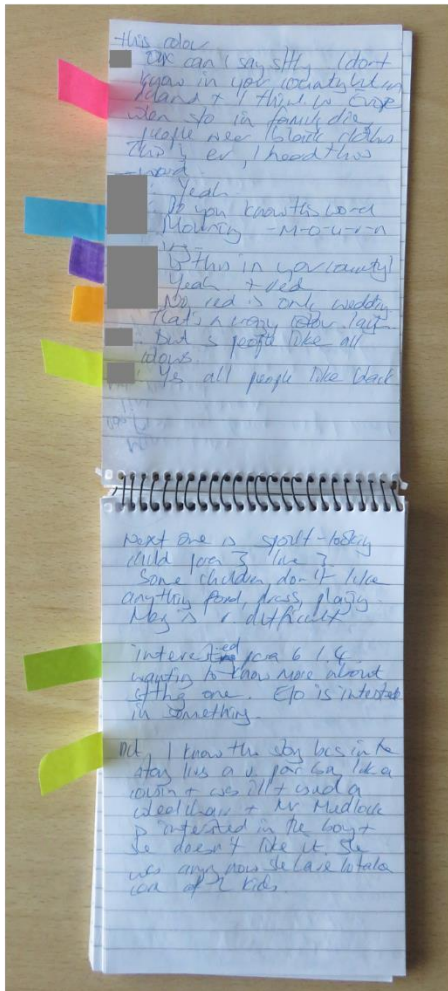 this colour
One can I say sthg I don't
know in your country but in
+ I think in Europe
when s/o in family die,
people wear black clothes
This is er, I heard this
word.
Yeah
Do you know this word
Mourning - M-o-u-r-n
Is this in your country?
Yeah + red
No red is only wedding
that's a crazy colour. laugh
But s people like all
colours.
Yes all people like black
Next one is spoilt-looking
child para 3 line 3
Some children don't like
anything food, dress, playing
Mary is v difficult
interested para 6 l.4
wanting to know more about
sthg one. E/o is interested
in something.
I know the story bcs in the
story lives a v. poor boy like a
cousin + was ill + used a
wheelchair + Mr Medlock
is interested in the boy +
she doesn't like it. She
was angry now she have to take
care of 2 kids.